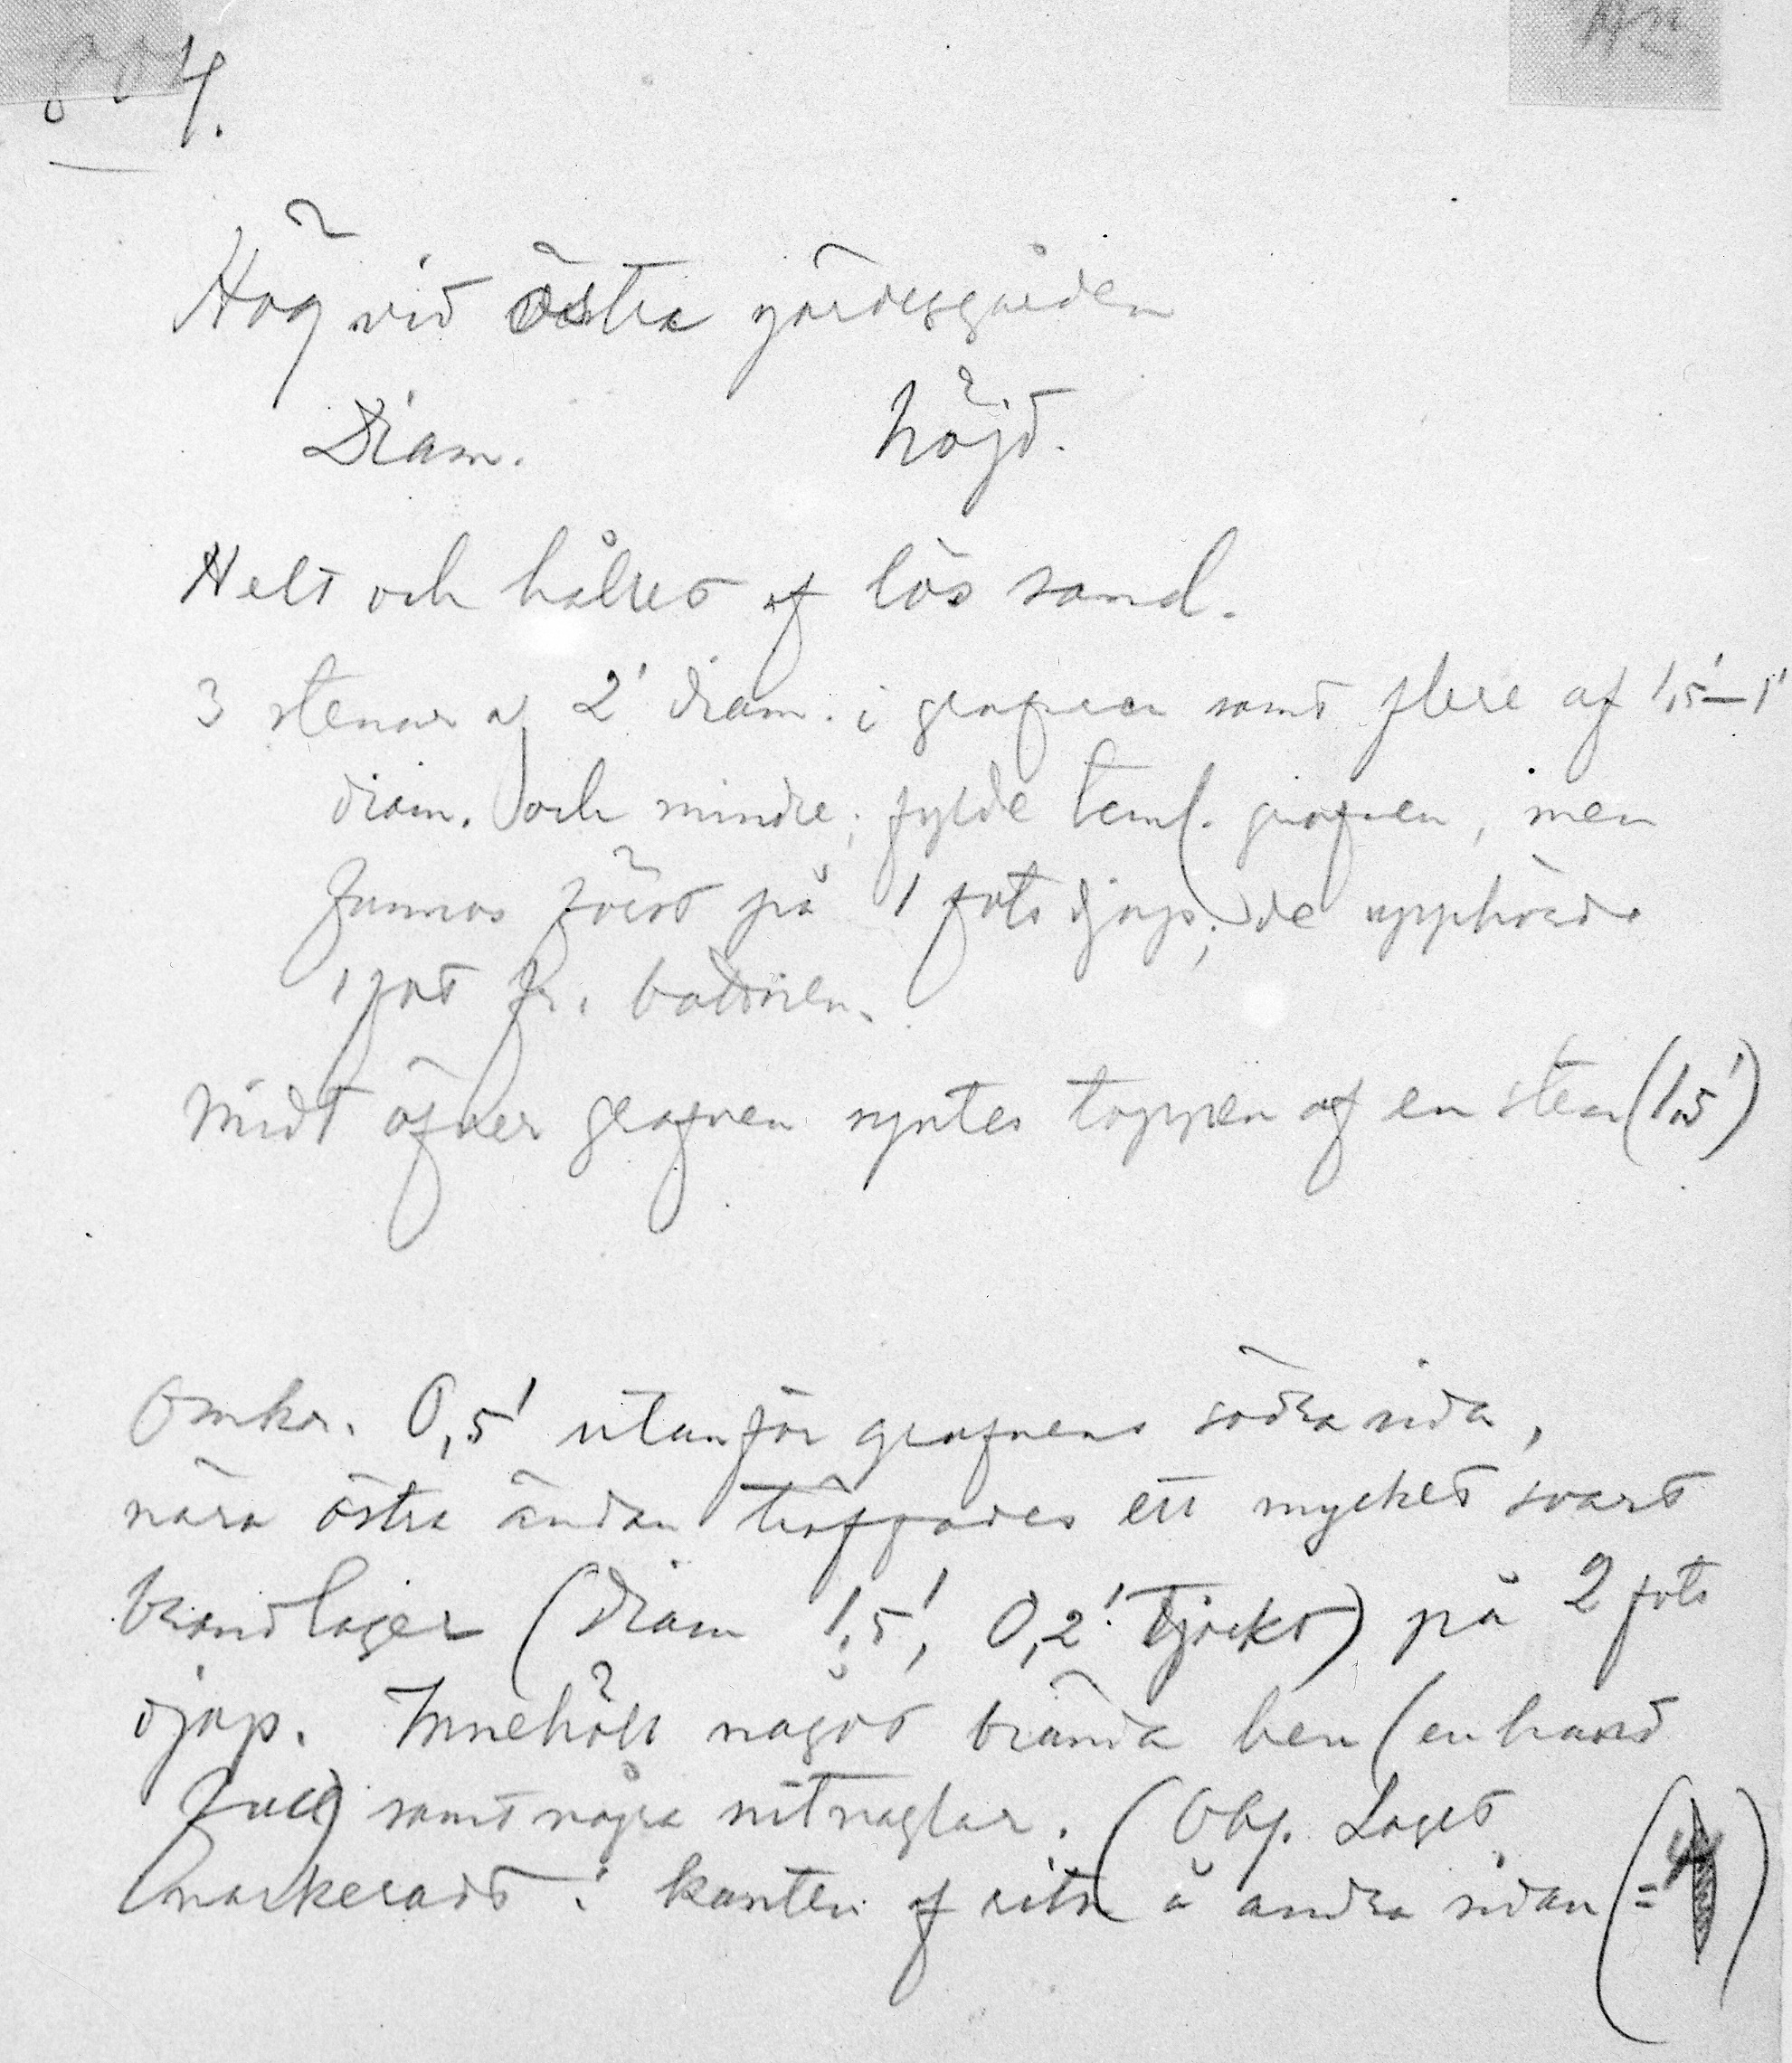 804.
Hög vid östra gärdesgården
Diam. höjd.
Helt och hållet af lös sand.
3 stenar af 2' diam. i grafven samt flere af 1,5'–1'
diam. och mindre; fylde teml. grafven, men
funnos först på 1 fots djup; de upphörde
1 fot fr. bottnen.
Midt öfver grafven syntes toppen af en sten (1,5')
Omkr. 0,5' utanför grafvens södra sida,
nära östra ändan träffades ett mycket svart
brandlager (diam 1,5', 0,2' tjockt) på 2 fots
djup. Innehöll något brända ben (en hand
full) samt några nitnaglar. (Obj. Laget
markeradt i kanten af ritn å andra sidan (=